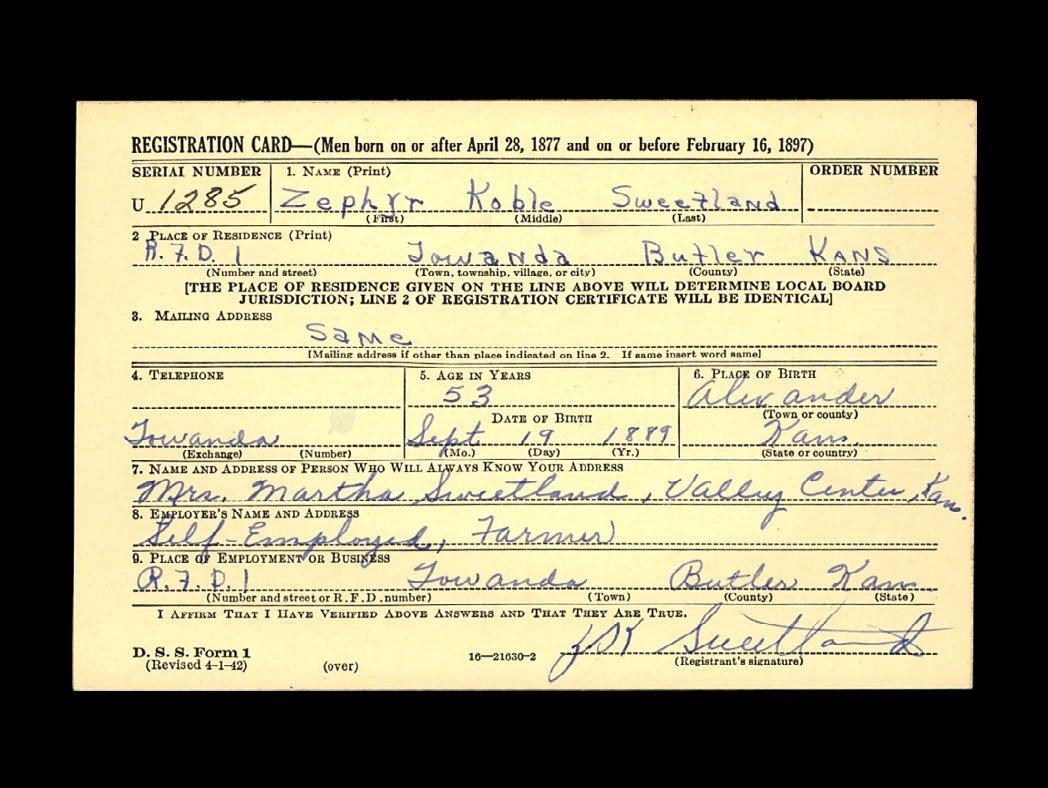 REGISTRATION CARD—(Men born on or after April 28, 1877 and on or before February 16, 1897)
SERIAL NUMBER 1. NAME (Print) ORDER NUMBER
U 1285 Zephyr Koble Sweetland
(First) (Middle) (Last)
2 PLACE OF RESIDENCE (Print)
R.F.D. 1 Towanda Butler KANS
(Number and street) (Town, township, village, or city) (County) (State)
[THE PLACE OF RESIDENCE GIVEN ON THE LINE ABOVE WILL DETERMINE LOCAL BOARD
JURISDICTION; LINE 2 OF REGISTRATION CERTIFICATE WILL BE IDENTICAL]
3. MAILING ADDRESS
Same
[Mailing address if other than place indicated on line 2. If same insert word same]
4. TELEPHONE 5. AGE IN YEARS 6. PLACE OF BIRTH
53 Alexander
DATE OF BIRTH (Town or county)
Towanda Sept 19 1889 Kans.
(Exchange) (Number) (Mo.) (Day) (Yr.) (State or country)
7. NAME AND ADDRESS OF PERSON WHO WILL ALWAYS KNOW YOUR ADDRESS
Mrs. Martha Sweetland, Valley Center, Kan.
8. EMPLOYER'S NAME AND ADDRESS
Self-Employed, Farmer
9. PLACE OF EMPLOYMENT OR BUSINESS
R.F.D. 1 Towanda Butler Kans
(Number and street or R.F.D. number) (Town) (County) (State)
I AFFIRM THAT I HAVE VERIFIED ABOVE ANSWERS AND THAT THEY ARE TRUE.
Sweetland
D. S. S. Form 1
(Revised 4-1-42) (over) 16—21630-2 (Registrant's signature)